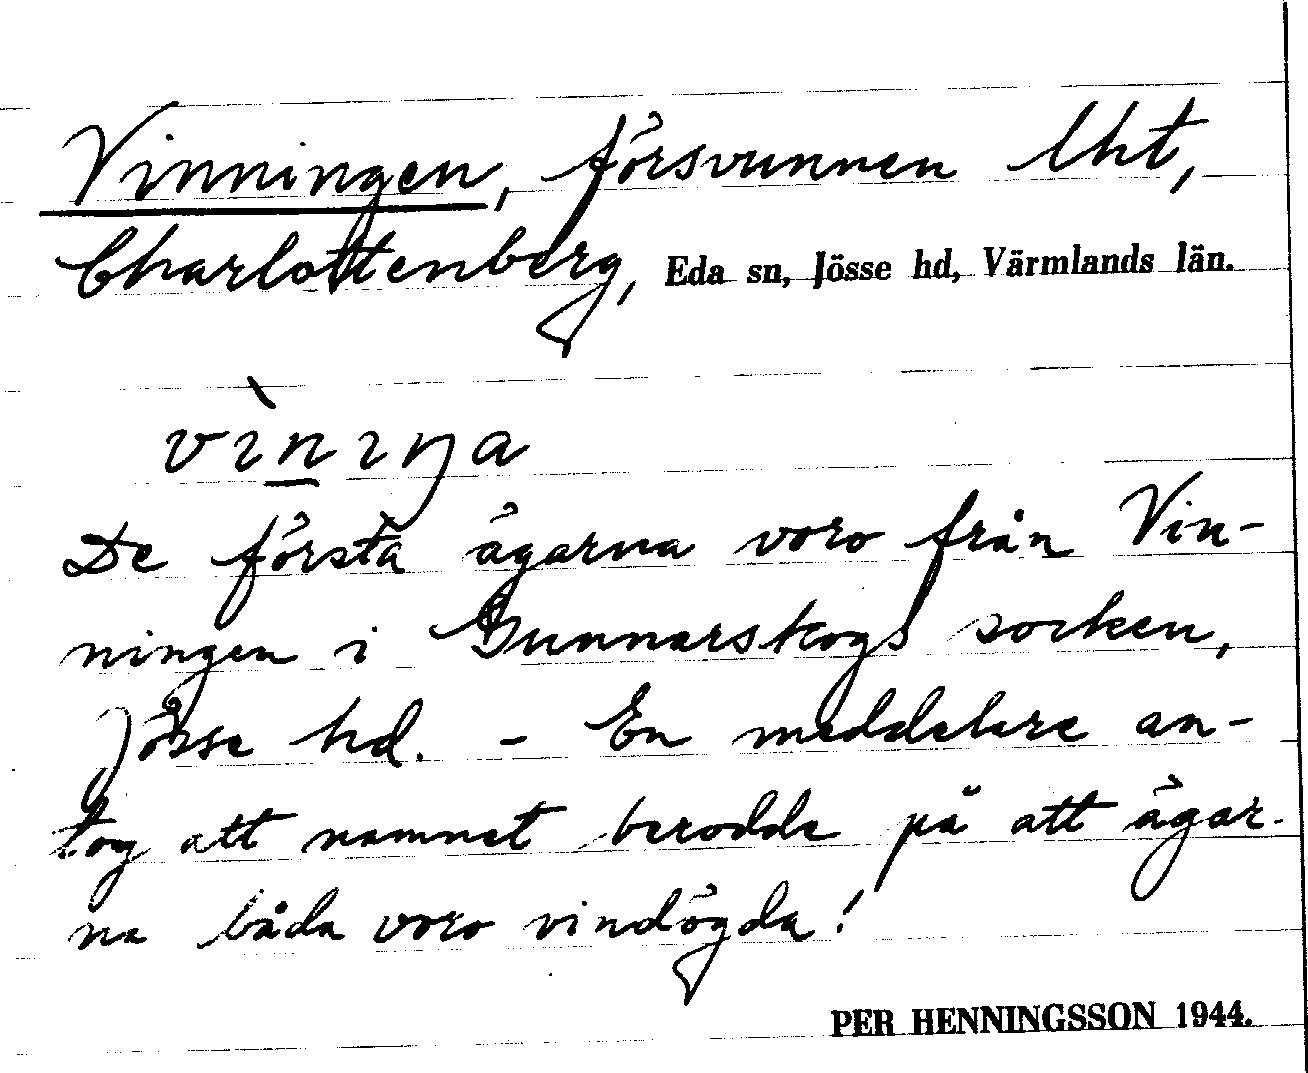 Vinningen, försvunnen lht,
Charlottenberg, Eda sn, Jösse hd, Värmlands län.
vìnıŋa
De första ägarna voro från Vin-
ningen i Gunnarskogs socken,
Jösse hd. - En meddelare an-
tog att namnet berodde på att ägar-
na båda voro vindögda!
PER HENNINGSSON 1944.